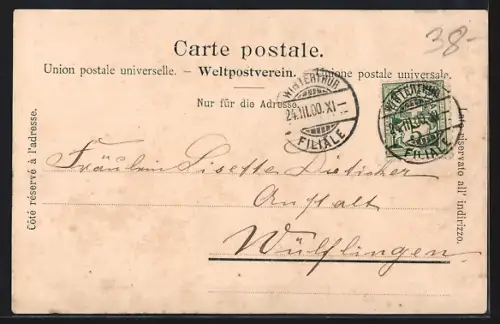 38-
Carte postale.
Union postale universelle. – Weltpostverein. – Unione postale universale.
Nur für die Adresse.
WINTERTHUR
24.III.00.XI–
FILIALE
WINTERTHUR
24.III.00.XI–
FILIALE
Côté réservé à l'adresse.
Lato riservato all' indirizzo.
Fräulein Lisette Dietscher
Anstalt
Wülflingen